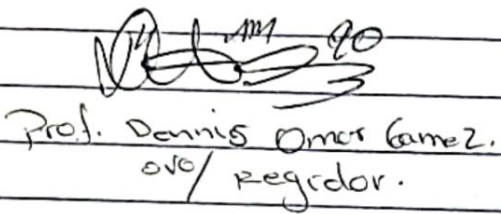 Prof. Dennis Omar Gamez.
/ Regidor.